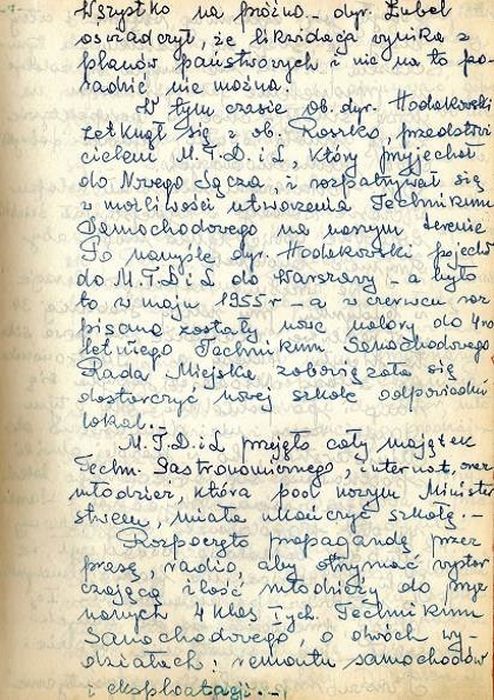 Wszystko na próżno – dyr. Lubel
oświadczył, że likwidacja wynika z
planów państwowych i nic na to po-
radzić nie można.
W tym czasie ob. dyr. Hodakowski
zetknął się z ob. Roszko, przedstawi
cielem M.T.D.i L, który przyjechał
do Nowego Sącza, i rozpatrywał się
w możliwości utworzenia Technikum
Samochodowego na naszym terenie
Po namyśle dyr. Hodakowski pojechał
do M.T.D i L do Warszawy – a było
to w maju 1955 r – a w czerwcu roz
pisane zostały nowe nabory do 4 ro
letniego Technikum Samochodowego
Rada Miejska zobowiązała się
dostarczyć nowej szkole odpowiedni
lokal. –
M.T.D.i L przejęło cały majątek
Techn. Gastronomicznego, internat, oraz
młodzież, która pod nowym Minister
stwem, miała ukończyć szkołę. –
Rozpoczęto propagandę przez
prasę, radio, aby otrzymać wystar
czającą ilość młodzieży do przy
nanych 4 klas I ych. Technikum
Samochodowego, o dwóch wy-
działach: remontu samochodów
i eksploatacji. –